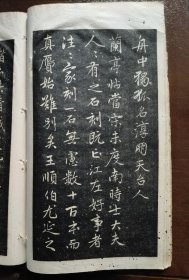 舟中獨孤名淳朋天台人
蘭亭帖當宋未度南時士大夫
人人有之石刻既亡江左好事者
往往家刻一石無慮數十百本而
真贋始難別矣王順伯尤延之